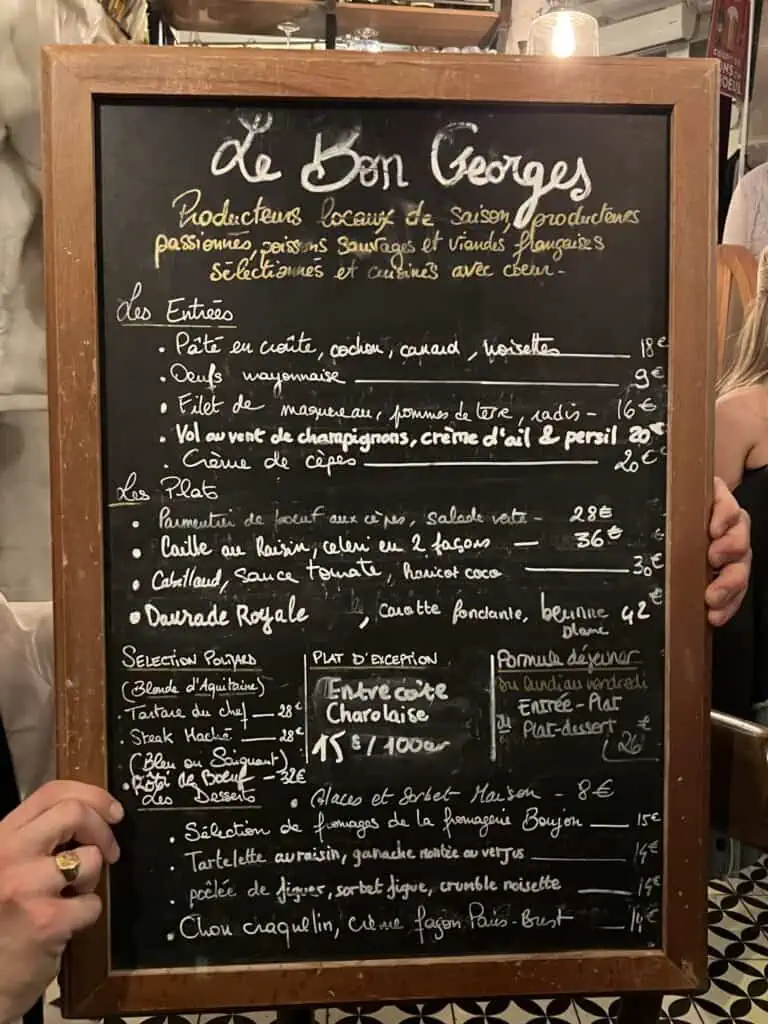 Le Bon Georges
Producteurs locaux de saison, producteurs
passionnés, poissons sauvages et viandes françaises
sélectionnés et cuisinés avec coeur -
Les Entrées
• Pâté en croûte, cochon, canard, noisettes 18€
• Oeufs mayonnaise 9€
• Filet de maquereau, pommes de terre, radis - 16€
• Vol au vent de champignons, crème d'ail & persil 20€
• Crème de cèpes 20€
Les Plats
• Parmentier de boeuf aux cèpes, salade verte - 28€
• Caille au Raisin, celeri en 2 façons — 36€
• Cabillaud, sauce tomate, haricot coco 30€
• Daurade Royale , carotte fondante, beurre blanc 42€
SELECTION POLMARD
(Blonde d'Aquitaine)
• Tartare du chef — 28€
• Steak Haché — 28€
(Bleu ou Saignant)
• Rôti de Boeuf - 32€
PLAT D'EXCEPTION
Entrecôte
Charolaise
15€/100gr
Formule déjeuner
Du lundi au vendredi
Entrée-Plat
ou Plat-dessert
26€
Les Desserts
• Glaces et Sorbet Maison - 8€
• Sélection de fromages de la fromagerie 15€
• Tartelette au raisin, ganache montée au verjus 14€
• poêlée de figues, sorbet figue, crumble noisette 14€
• Chou craquelin, crème façon Paris-Brest 14€